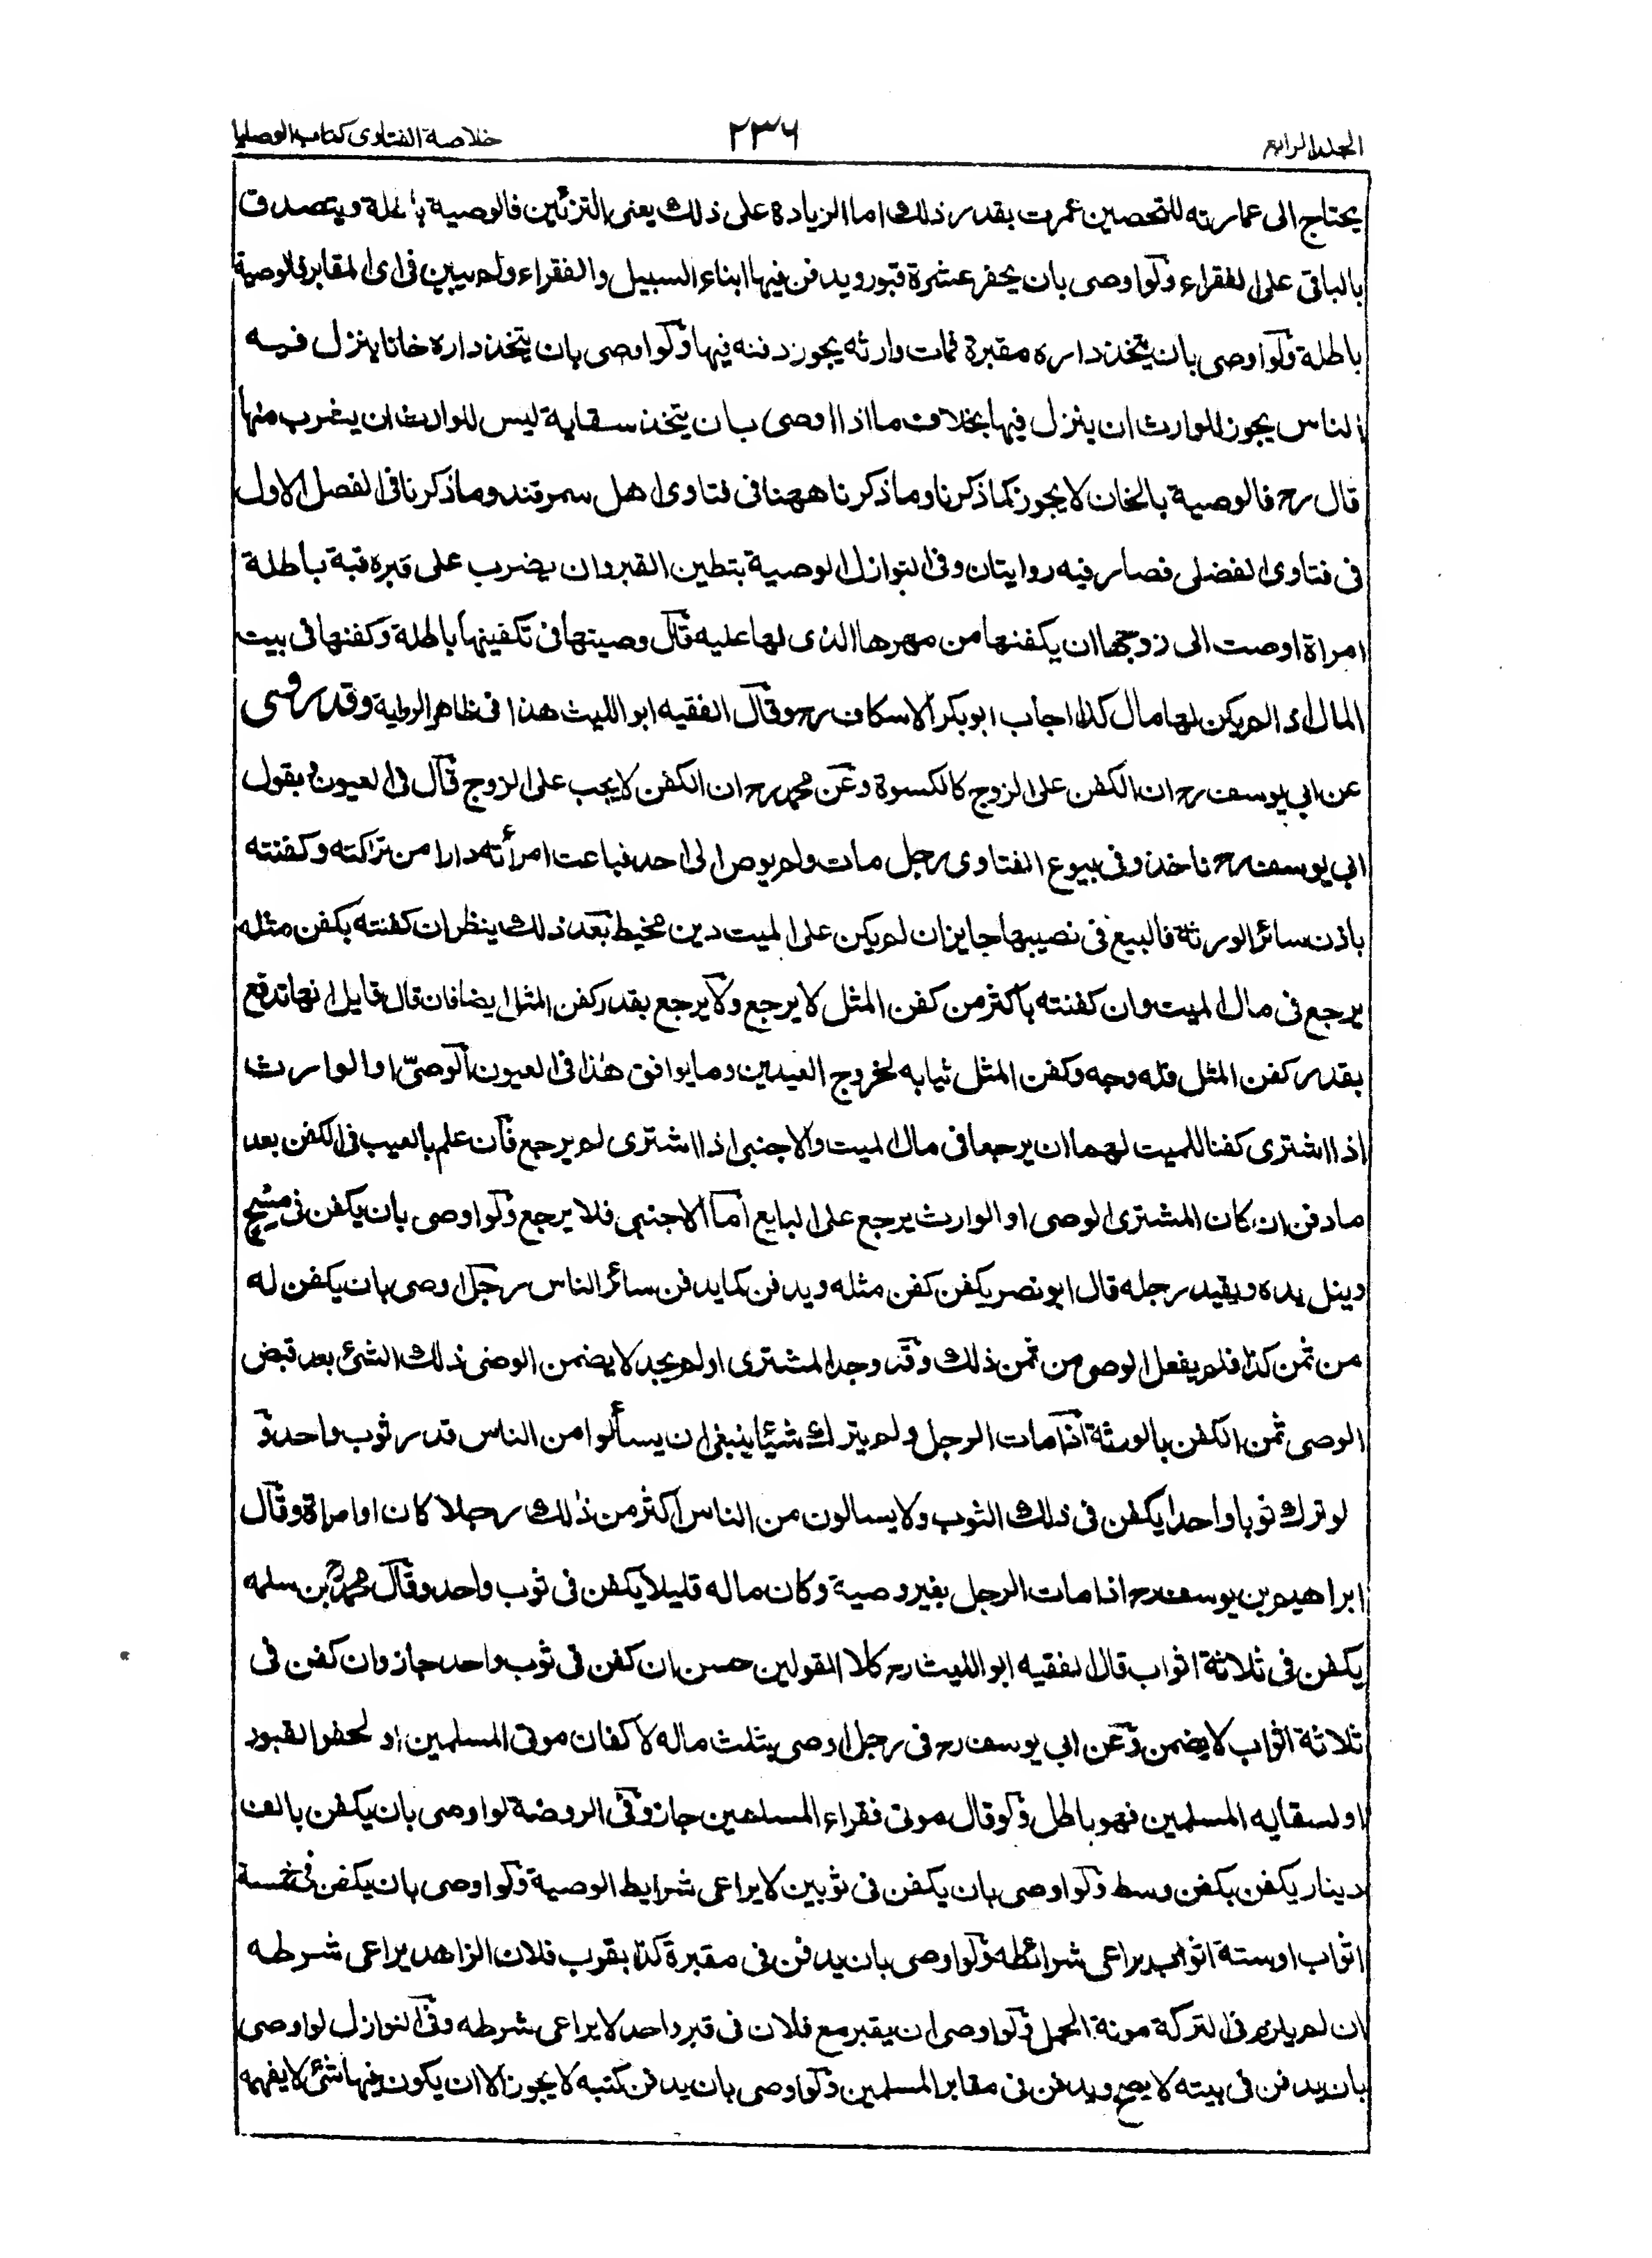 الجلد الرابع ٢٣٦ خلاصة الفتاوى كتاب الوصايا
يحتاج الى عمارته للتحصين عمرت بقدر ذلك اما الزيادة على ذلك يعنى التزئين فالوصية باطلة ويتصدق
بالباقى على الفقراء ولو اوصى بان يحفر عشرة قبور ويدفن فيها ابناء السبيل والفقراء ولم يبين فى اى المقابر فالوصية
باطلة ولو اوصى بان يتخذ داره مقبرة فمات وارثه يجوز دفنه فيها ولو اوصى بان يتخذ داره خانا ينزل فيه
الناس يجوز للوارث ان ينزل فيها بخلاف ما اذا اوصى بان يتخذ سقاية ليس للوارث ان يشرب منها
قال رح فالوصية بالخان لا يجوز كما ذكرنا وما ذكرنا ههنا فى فتاوى اهل سمرقند وما ذكرنا فى الفصل الاول
فى فتاوى الفضلى فصار فيه روايتان وفى النوازل الوصية بتطين القبر وان يضرب على قبره قبة باطلة
امراة اوصت الى زوجها ان يكفنها من مهرها الذى لها عليه قال وصيتها فى تكفينها باطلة وكفنها فى بيت
المال اذا لم يكن لها مال كذا اجاب ابو بكر الاسكاف رح وقال الفقيه ابو الليث هذا فى ظاهر الرواية وقد روى
عن ابى يوسف رح ان الكفن على الزوج كالكسوة وعن محمد رح ان الكفن لا يجب على الزوج قال فى العيون وبقول
ابى يوسف رح ناخذ وفى بيوع الفتاوى رجل مات ولم يوص الى احد فباعت امرأته دارا من تركته وكفنته
باذن سائر الورثة فالبيع فى نصيبها جايز ان لم يكن على الميت دين محيط بعد ذلك ينظر ان كفنته بكفن مثله
يرجع فى مال الميت وان كفنته باكثر من كفن المثل لا يرجع ولا يرجع بقدر كفن المثل ايضا فان قال قايل انها تدفع
بقدر كفن المثل فله وجه وكفن المثل ثيابه لخروج العيدين وما يوافق هذا فى العيون الوصىّ او الوارث
اذا اشترى كفنا للميت لهما ان يرجعا فى مال الميت والاجنبى اذا اشترى لم يرجع فان علم بالعيب فى الكفن بعد
ما دفن ان كان المشترى الوصى او الوارث يرجع على البايع اما الاجنبى فلا يرجع ولو اوصى بان يكفن فى
ويغل يده ويقيد رجله قال ابو نصر يكفن كفن مثله ويدفن كما يدفن سائر الناس رجل اوصى بان يكفن له
من ثمن كذا فلم يفعل الوصى من ثمن ذلك وقد وجد المشترى او لم يجد لا يضمن الوصى ذلك الشئ بعد قبض
الوصى ثمن الكفن بالورثة اذا مات الرجل ولم يترك شيئا ينبغى ان يسألوا من الناس قدر ثوب واحد و
لو ترك ثوبا واحدا يكفن فى ذلك الثوب ولا يسالون من الناس اكثر من ذلك رجلا كان او امراة وقال
ابراهيم بن يوسف رح اذا مات الرجل بغير وصية وكان ماله قليلا يكفن فى ثوب واحد وقال محمد بن سلمه
يكفن فى ثلاثة اثواب قال الفقيه ابو الليث رح كلا القولين حسن ان كفن فى ثوب واحد جاز وان كفن فى
ثلاثة اثواب لا يضمن وعن ابى يوسف رح فى رجل اوصى بثلث ماله لاكفان موتى المسلمين او لحفر القبور
او لسقايه المسلمين فهو باطل ولو قال موتى فقراء المسلمين جاز وفى الروضة لو اوصى بان يكفن بالف
دينار يكفن بكفن وسط ولو اوصى بان يكفن فى ثوبين لا يراعى شرايط الوصية ولو اوصى بان يكفن فى خمسة
اثواب او ستة اثواب يراعى شرائطه ولو اوصى بان يدفن فى مقبرة كذا بقرب فلان الزاهد يراعى شرطه
ان لم يلزم فى التركة مونة الحمل ولو اوصى ان يقبر مع فلان فى قبر واحد لا يراعى شرطه وفى النوازل لو اوصى
بان يدفن فى بيته لا يصح ويدفن فى مقابر المسلمين ولو اوصى بان يدفن كتبه لا يجوز الا ان يكون فيها شئ لا يفهمه